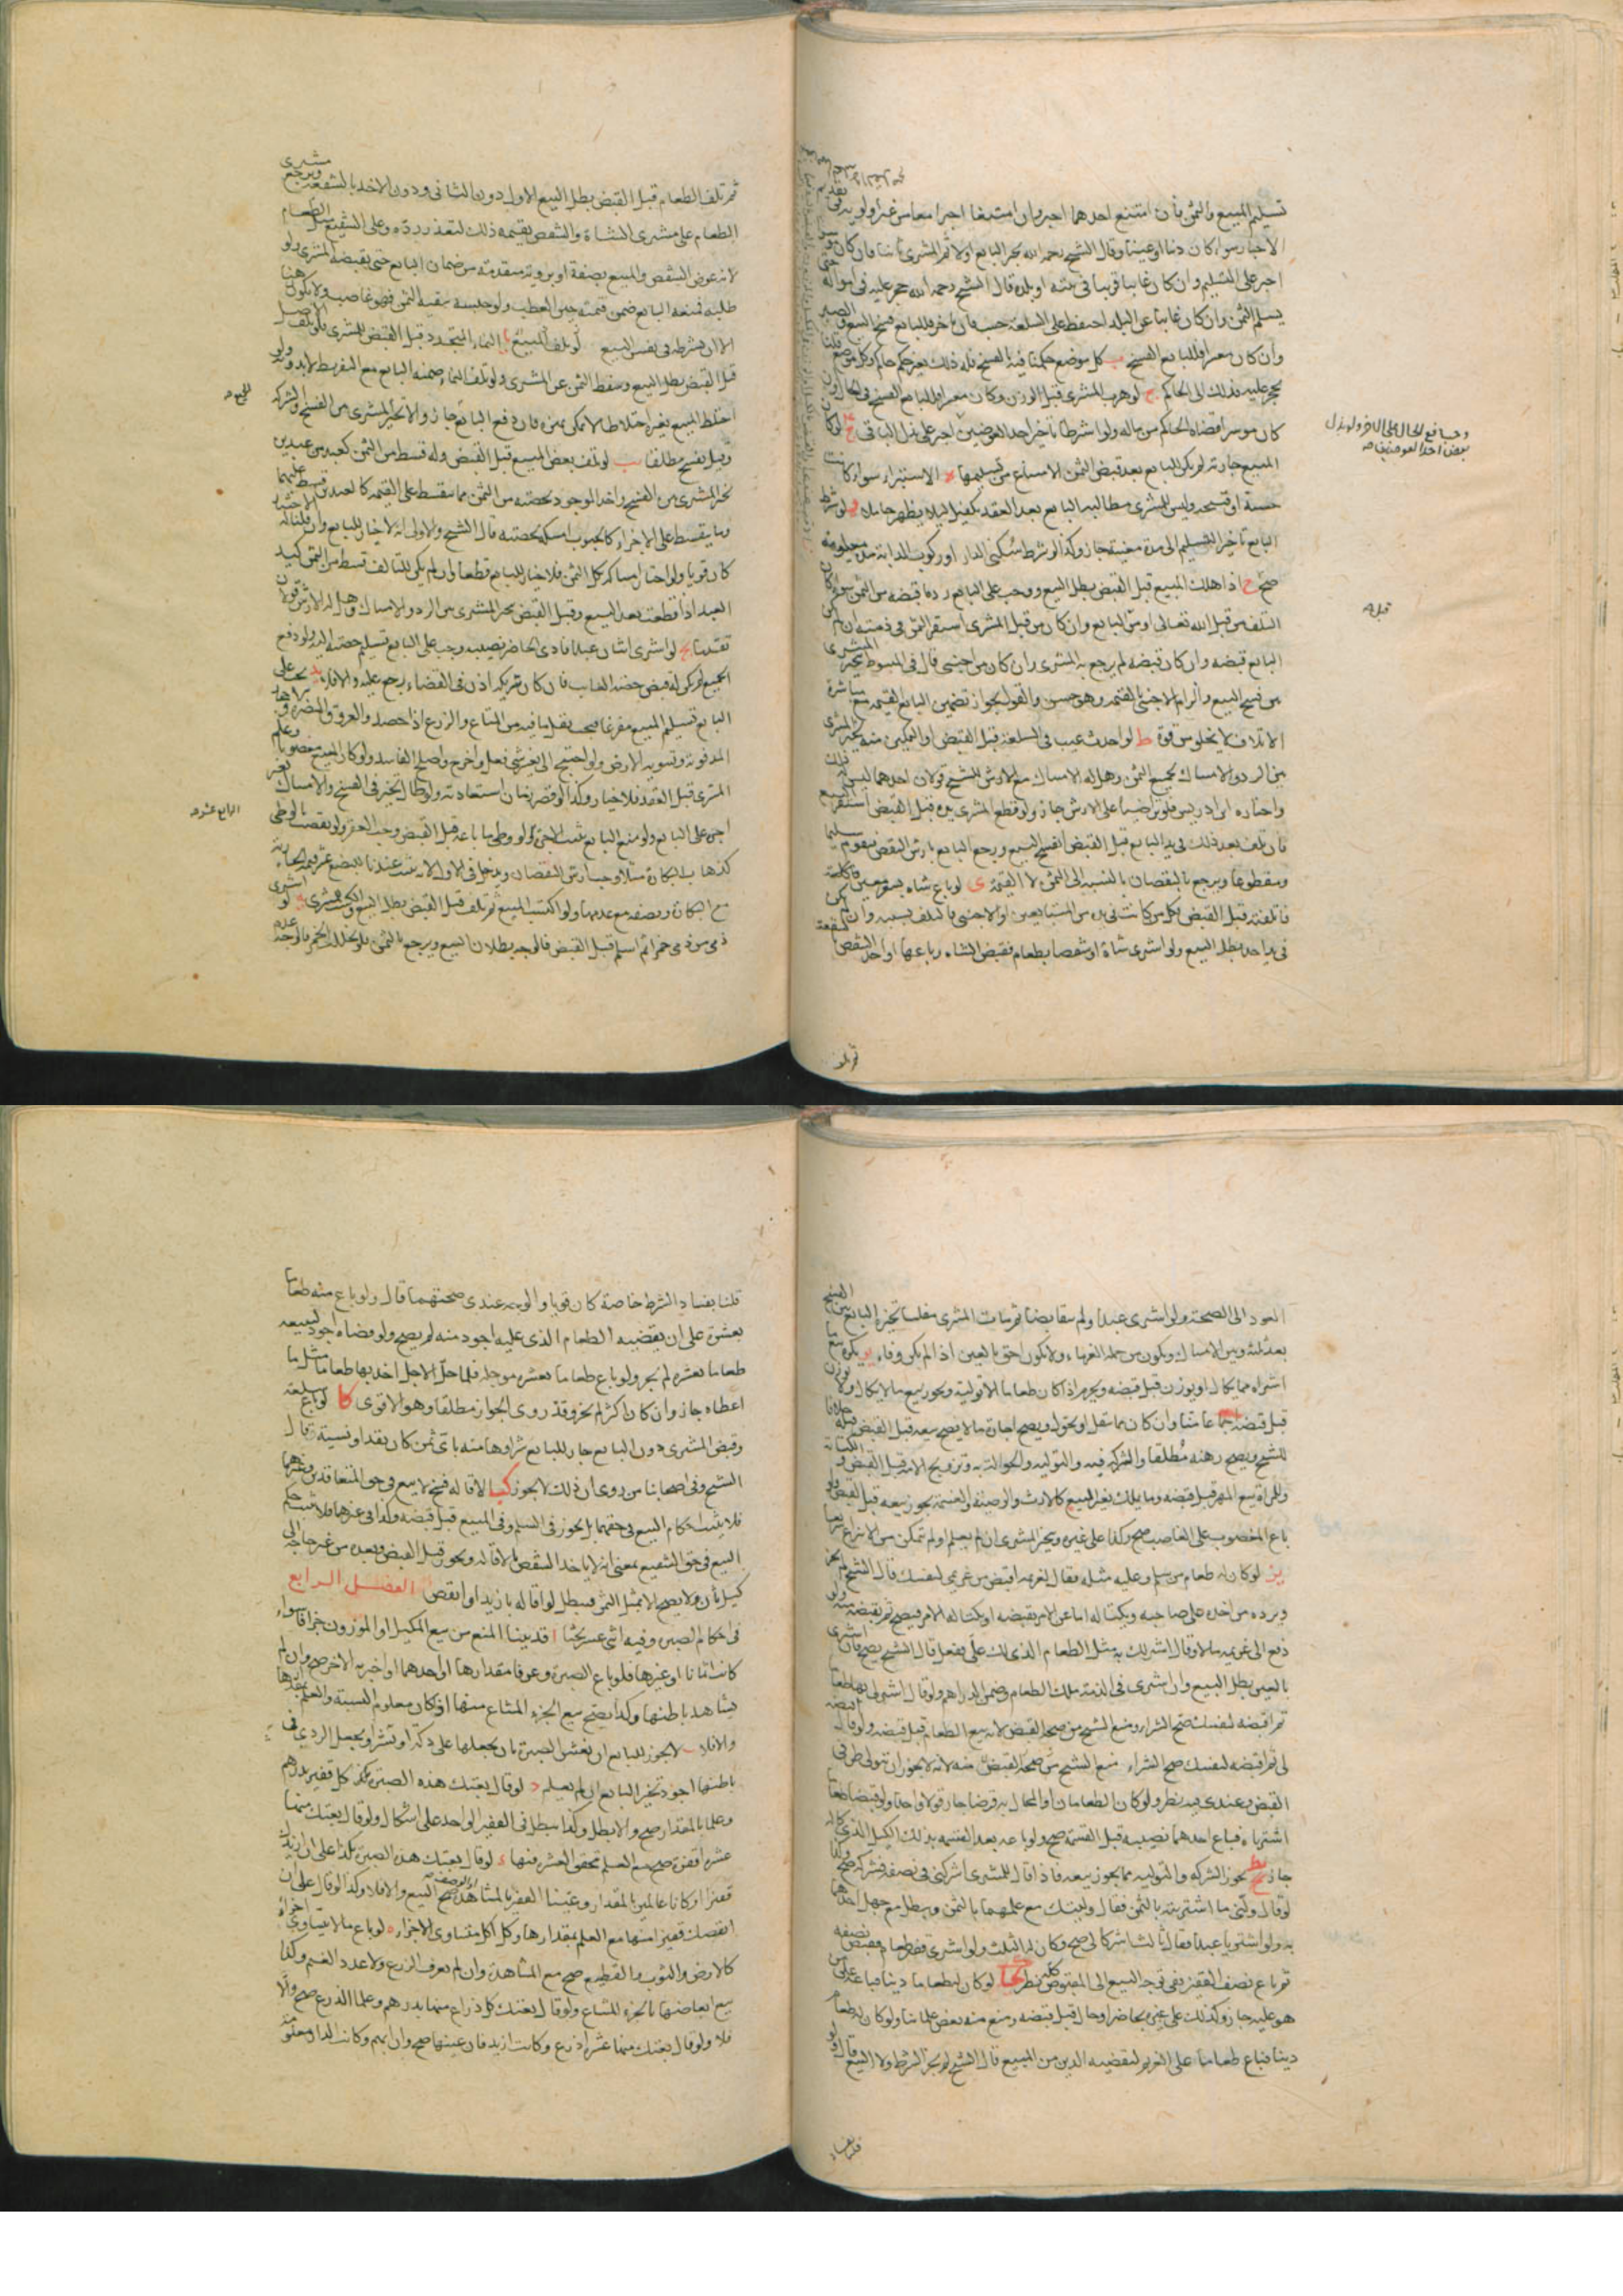 تسليم المبيع والثمن فأن امتنع احدهما اجبر وان امتنعا اجبرا معا من غير اولوية في تقديم
الاجبار سواء كان دينا او عينا وقال الشيخ رحمه الله يجبر البايع اولا ثم المشترى ثانيا فان كان
اجبر على التسليم وان كان غايبا قريبا في بيته او بلده قال الشيخ رحمه الله حجر عليه في امواله حتى
يسلم الثمن وان كان غايبا عن البلد احتفظ على السلعة حسب فان تاخر فللبايع فسخ البيع والصبر
وان كان معسرا فللبايع الفسخ ب كل موضع حكمنا فيه بالفسخ فله ذلك بغير حكم حاكم وكل موضع قلنا
يحجر عليه فذلك الى الحاكم ج لو هرب المشترى قبل الوزن وكان معسرا فللبايع الفسخ في الحال وان
كان موسرا قضاه الحاكم من ماله ولو اشرطا تأخير احد العوضين اجبر على بذل الباقي لو كان
المبيع جارية لم يكن للبايع بعد قبض الثمن الامتناع من تسليمها الاستبراء سواء كانت
حسنة او قبيحه وليس للمشترى مطالبة البايع بعد العقد بكفيل ليلا يظهر حاملا ولو شرط
البايع تأخير التسليم الى مدة معينة جاز وكذا لو شرط سكنى الدار او ركوب الدابة مدة معلومة
صح ح اذا هلك المبيع قبل القبض بطل البيع ووجب على البايع رد ما قبضه من الثمن سواء كان
التلف من قبل الله تعالى او من البايع وان كان من قبل المشترى استقر الثمن في ذمته ان لم يكن
البايع قبضه وان كان قبضه لم يرجع به المشترى وان كان من اجنبى قال في المبسوط يتخير المشترى
بين فسخ البيع والزام الاجنبى بالقيمة وهو حسن والقول بجواز تضمين البايع القيمه مع مباشرة
الاتلاف لا يخلو من قوة ط لو احدث عيب في السلعة قبل القبض او التمكين منه يخير المشترى
بين الرد والامساك بجميع الثمن وهل له الامساك مع الارش للشيخ قولان احدهما ليس له ذلك
واختاره ابن ادريس فلو تراضيا على الارش جاز ولو قطع المشترى يده قبل القبض استقر البيع
فان تلف بعد ذلك في يد البايع قبل القبض انفسخ البيع ويرجع البايع بارش النقص فيقوم سليما
ومقطوعا ويرجع بالنقصان بالنسبة الى الثمن لا القيمة ى لو باع شاه بشعير معين فاكلته
فاتلفته قبل القبض فكل من كانت في يده من المتبايعين او الاجنبى فالتلف بسببه وان لم يكن
في يد احد بطل البيع ولو اشترى شاة او شقصا بطعام فقبض الشاه وباعها او اخذ الشقص بالشفعة
ثم تلف
وجب دفع الحال على الآخر ولو بذل
بعض احد العوضين صه
قبله
ثم تلف الطعام قبل القبض بطل البيع الاول دون الثانى ودون الاخذ بالشفعه ويرجع مشترى
الطعام على مشترى الشاة والشقص بقيمة ذلك لتعذر رده وعلى الشفيع مثل الطعام
لانه عوض الشقص والمبيع بصفة او برويه متقدمة من ضمان البايع حتى يقبضه المشترى ولو
طلبه فمنعه البايع ضمن قيمته حين العطب ولو حبسه ببقية الثمن فهو غاصب ولا يكون هنا
الا ان يشرطه في نفس البيع يا النماء المتجدد قبل القبض للمشترى فلو تلف الاصل
قبل القبض بطل البيع وسقط الثمن عن المشترى ولو تلف النماء ضمنه البايع مع التفريط لا بدونه ولو
اختلط المبيع بغيره اختلاطا لا يمكن تميزه فان دفع البايع جاز والا تخير المشترى بين الفسخ والشركه
وقيل يفسخ مطلقا يب لو تلف بعض المبيع قبل القبض وله قسط من الثمن كعبد من عبدين
تخير المشترى بين الفسخ واخذ الموجود بحصته من الثمن مما يتقسط على القيمه كالعبدين قسط عليهما
وما يتقسط على الاجزاء كالحبوب امسكه بحصته قال الشيخ والاولى انه لا خيار للبايع وان قلنا له
كان قويا ولو اختار امساكه بكل الثمن فلا خيار للبايع قطعا وان لم يكن للتالف قسط من الثمن كيد
العبد اذا قطعت بعد البيع وقبل القبض يخير المشترى بين الرد والامساك وهل له الارش قولان
تقدما يج لو اشترى اثنان عبدا فادى الحاضر نصيبه وجب على البايع تسليم حصته اليه ولو دفع
الجميع لم يكن له قبض حصة الغايب فان كان شريكه اذن في القضاء رجع عليه والا فلا يد يجب على
البايع تسليم المبيع مفرغا فيجب نقل ما فيه من المتاع والزرع اذا حصد والعروق المضره و
المدفونة وتسوية الارض ولو احتيج الى تغيير شيء فعل واخرج واصلح الفاسد ولو كان المبيع مغصوبا وعلم
المشترى قبل العقد فلا خيار وكذا لو قصر زمان استعادته ولو طال تخير في الفسخ والامساك بغير
اجرة على البايع ولو منع البايع ثبت الاجرة ولو وطى ما باعه قبل القبض وجب العقر ولو نقصت بالوطى
كذهاب البكارة مثلا وجب ارش النقصان ويدخل في الاول الارش يثبت عندنا للبضع عشر قيمة الجارية
مع البكارة ونصفه مع عدمها ولو اكتسب المبيع ثم تلف قبل القبض بطل البيع والكسب للمشترى لو اشترى
ذمى من ذمى خمرا ثم اسلم قبل القبض فالوجه بطلان البيع ويرجع بالثمن فلو تخلل الخمر فالوجه عدم
للبيع صه
الرابع عشر صه
العود الى الصحة ولو اشترى عبدا ولم يتقابضا ثم مات المشترى مفلسا تخير البايع بين الفسخ
بعد ثلثه وبين الامساك ويكون من جملة الغرماء ولا يكون احق بالعين اذا لم يكن وفاء يو يكره بيع ما
اشتراه مما يكال او يوزن قبل قبضه ويحرم اذا كان طعاما الا توليه ويجوز بيع ما لا يكال ولا يوزن
قبل قبضه اجماعا منا وان كان مما ينقل او يحول ويصح اجارة ما لا يصح بيعه قبل القبض قبله خلافا
للشيخ ويصح رهنه مطلقا والشركه فيه والتوليه والحوالة به وتزويج الامه قبل القبض والكتابة
وللمراة بيع المهر قبل قبضه وما يملك بغير البيع كالارث والوصية والغنيمة يجوز بيعه قبل القبض ولو
باع المغصوب على الغاصب صح وكذا على غيره ويخير المشترى ان لم يعلم ولم تمكن من الانتزاع سريعا
يز لو كان له طعام من سلم وعليه مثله فقال لغريمه اقبض من غريمى لنفسك قال الشيخ لم يجز
ويرده من اخذه على صاحبه ويكتاله اما عن الامر بقبضه او يكتاله الامر فيصح ثم يقبضه منه ولو
دفع الى غريمه مالا وقال اشتر لك به مثل الطعام الذى لك على ففعل قال الشيخ يصح فان اشترى
بالعين بطل البيع وان اشترى في الذمة ملك الطعام وضمن الدراهم ولو قال اشتر لى بها طعاما
ثم اقبضه لنفسك صح الشراء ومنع الشيخ من صحة القبض لانه بيع الطعام قبل قبضه ولو قال اقبضه
لى ثم اقبضه لنفسك صح الشراء منع الشيخ من صحة القبض منه لانه لا يجوز ان يتولى طرفى
القبض وعندى فيه نظر ولو كان الطعامان او المحال به قرضا جاز قولا واحدا ولو قبضا طعاما
اشترياه فباع احدهما نصيبه قبل القسمة صح ولو باعه بعد القسمه بذلك الكيل الذى كاله
جاز يح يجوز الشركه والتوليه مما يجوز بيعه فاذا قال للمشترى اشركنى في نصفه فشركه صح وكذا
لو قال ولنى ما اشتريته بالثمن فقال وليتك مع علمهما بالثمن ويبطل مع جهل احدهما
به ولو اشتريا عبدا فقال ثالث اشركانى صح وكان له الثلث ولو اشترى قفيز طعام فقبض نصفه
ثم باع نصف القفيز ففى توجه البيع الى المقبوض كله نظر يط لو كان له طعاما دينا فباعه على من
هو عليه جاز وكذلك على غيره بحاضر او حال قبل قبضه ومنع منه بعض علمائنا ولو كان له طعام
دينا فباع طعاما على الغريم ليقضيه الدين من المبيع قال الشيخ لم يجز الشرط ولا البيع ولو
قلنا بفساد
قلنا بفساد الشرط خاصة كان قويا والوجه عندى صحتهما قال ولو باع منه طعاما
بعشرة على ان يقضيه الطعام الذى عليه اجود منه لم يصح ولو قضاه اجود ليبيعه
طعاما بعشره لم يجز ولو باع طعاما بعشره موجله فلما حل الاجل اخذ بها طعاما مثل ما
اعطاه جاز وان كان اكثر لم يجز وقد روى الجواز مطلقا وهو الاقوى كا لو باع سلعة
وقبض المشترى دون البايع جاز للبايع شراوها منه باى ثمن كان نقدا ونسيئة قال
الشيخ وفى اصحابنا من روى ان ذلك لا يجوز كب الاقاله فسخ لا بيع فى حق المتعاقدين وغيرهما
فلا يثبت احكام البيع فى حقهما بل يجوز فى السلم وفى المبيع قبل قبضه وكذا فى غيرهما فلا يثبت حكم
البيع فى حق الشفيع بمعنى انه لا ياخذ الشقص بالاقاله ويجوز قبل القبض وبعده من غير حاجة الى
كيل ثان ولا يصح الا بمثل الثمن فيبطل لو اقاله بازيد او انقص الفصل الرابع
فى احكام الصبرة وفيه اثنى عشر بحثا ا قد بينا المنع من بيع المكيل او الموزون جزافا سواء
كانت اثمانا او غيرها فلو باع الصبرة وعرفا مقدارها او احدهما او اخبره الاخر صح وان لم
يشاهد باطنها وكذا يصح بيع الجزء المشاع منها اذا كان معلوم النسبة والعلم بقدرها
والا فلا لا يجوز للبايع ان يغش الصبرة بان يجعلها على دكة او نشز او يجعل الردى فى
باطنها اجود تخير البايع ان لم يعلم د لو قال بعتك هذه الصبرة كل قفيز بدرهم
وعلما بالمقدار صح والا بطل وكذا يبطل فى القفيز الواحد على اشكال ولو قال بعتك منها
عشره اقفزة صح مع العلم بتحقق العشر فيها لو قال بعتك هذه الصبرة بكذا على ان ازيدك
قفيزا وكانا عالمين بالمقدار وعينا القفيز بالمشاهدة او الوصف صح البيع والا فلا وكذا لو قال على ان
انقصك قفيزا منها مع العلم بمقدارها وكل اكل متساوى الاجزاء لو باع ما لا يتساوى اجزاءه
كالارض والثوب والقطيع صح مع المشاهدة وان لم يعرف الذرع ولا عدد الغنم وكذا
بيع ابعاضها بالجزء المشاع ولو قال بعتك كل ذراع منها بدرهم وعلما الذرع صح والا
فلا ولو قال بعتك منها عشر اذرع وكانت ازيد فان عينها صح وان ابهم وكانت الدار معلومة